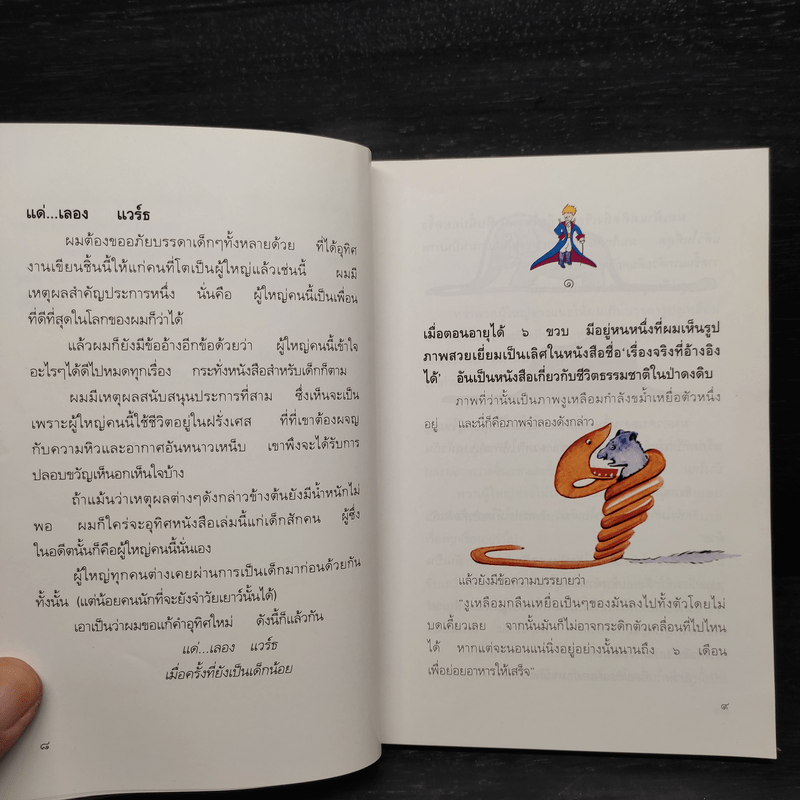 แด่...เลอง แวร์ธ
ผมต้องขออภัยบรรดาเด็กๆทั้งหลายด้วย ที่ได้อุทิศ
งานเขียนชิ้นนี้ให้แก่คนที่โตเป็นผู้ใหญ่แล้วเช่นนี้ ผมมี
เหตุผลสำคัญประการหนึ่ง นั่นคือ ผู้ใหญ่คนนี้เป็นเพื่อน
ที่ดีที่สุดในโลกของผมก็ว่าได้
แล้วผมก็ยังมีข้ออ้างอีกข้อด้วยว่า ผู้ใหญ่คนนี้เข้าใจ
อะไรๆได้ดีไปหมดทุกเรื่อง กระทั่งหนังสือสำหรับเด็กก็ตาม
ผมมีเหตุผลสนับสนุนประการที่สาม ซึ่งเห็นจะเป็น
เพราะผู้ใหญ่คนนี้ใช้ชีวิตอยู่ในฝรั่งเศส ที่ที่เขาต้องผจญ
กับความหิวและอากาศอันหนาวเหน็บ เขาพึงจะได้รับการ
ปลอบขวัญเห็นอกเห็นใจบ้าง
ถ้าแม้นว่าเหตุผลต่างๆดังกล่าวข้างต้นยังมีน้ำหนักไม่
พอ ผมก็ใคร่จะอุทิศหนังสือเล่มนี้แก่เด็กสักคน ผู้ซึ่ง
ในอดีตนั้นก็คือผู้ใหญ่คนนี้นั่นเอง
ผู้ใหญ่ทุกคนต่างเคยผ่านการเป็นเด็กมาก่อนด้วยกัน
ทั้งนั้น (แต่น้อยคนนักที่จะยังจำวัยเยาว์นั้นได้)
เอาเป็นว่าผมขอแก้คำอุทิศใหม่ ดังนี้ก็แล้วกัน
แด่...เลอง แวร์ธ
เมื่อครั้งที่ยังเป็นเด็กน้อย
๘
๑
เมื่อตอนอายุได้ ๖ ขวบ มีอยู่หนหนึ่งที่ผมเห็นรูป
ภาพสวยเยี่ยมเป็นเลิศในหนังสือชื่อ'เรื่องจริงที่อ้างอิง
ได้' อันเป็นหนังสือเกี่ยวกับชีวิตธรรมชาติในป่าดงดิบ
ภาพที่ว่านั้นเป็นภาพงูเหลือมกำลังขม้ำเหยื่อตัวหนึ่ง
อยู่ และนี่ก็คือภาพจำลองดังกล่าว
แล้วยังมีข้อความบรรยายว่า
"งูเหลือมกลืนเหยื่อเป็นๆของมันลงไปทั้งตัวโดยไม่
บดเคี้ยวเลย จากนั้นมันก็ไม่อาจกระดิกตัวเคลื่อนที่ไปไหน
ได้ หากแต่จะนอนแน่นิ่งอยู่อย่างนั้นนานถึง ๖ เดือน
เพื่อย่อยอาหารให้เสร็จ"
๙